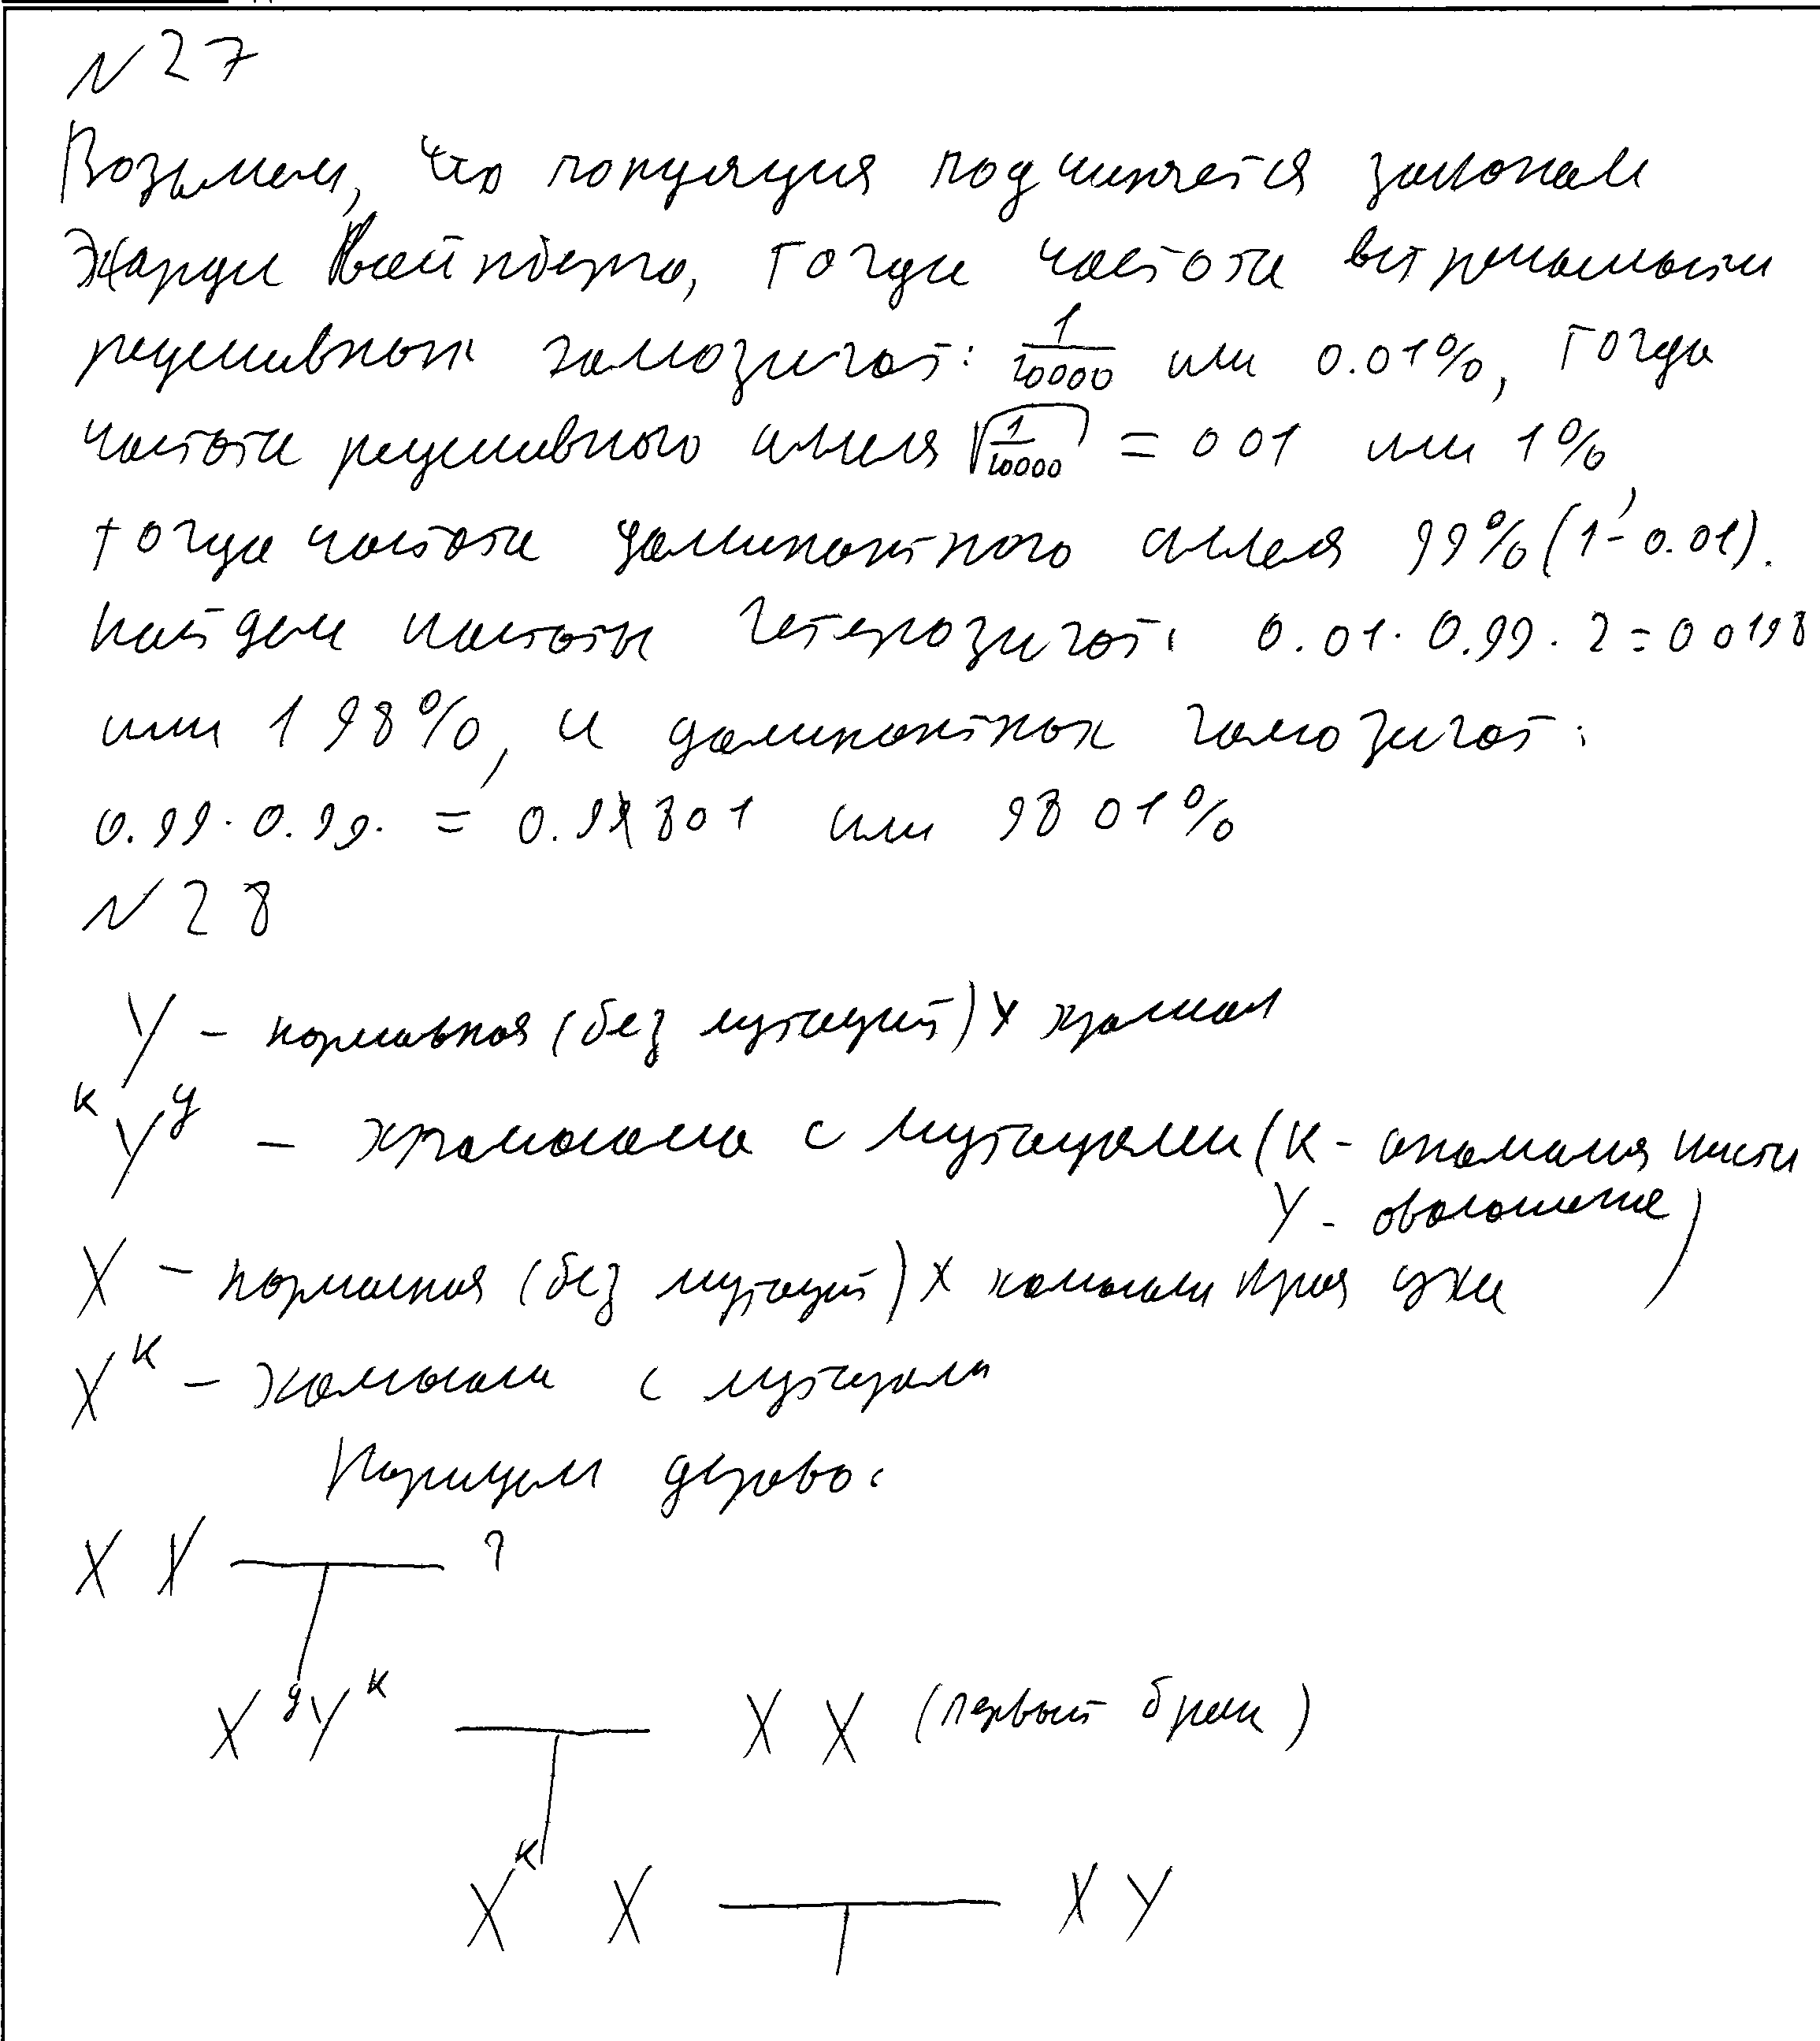 N 27
Возьмем, что популяция подчиняется законам
Харди Вайнберга, тогда частота встречаемости
рецесивных гамозигот: 1/10000 или 0.01%, тогда
частота рецесивного аллеля √(1/10000) = 0 01 или 1%,
тогда частота доминантного аллеля 99% (1-0.01).
Найдем частоты гетерозигот: 0.01 · 0.99 · 2 = 0 0198
или 1 98%, и доминантных гамозигот:
0.99 · 0.99 = 0.9801 или 98 01%
N 28
Y – нормальная (без мутаций) Y хромосома
ᴷYʸ – хромосома с мутацями (К - аномалия кисти
У - оволошение
X – нормальная (без мутаций) X хомосома края уха)
Xᴷ – хомосома с мутацями
Нарисуем дерево:
X X ?
XʸYᴷ X X (первый брак)
Xᴷ X X Y